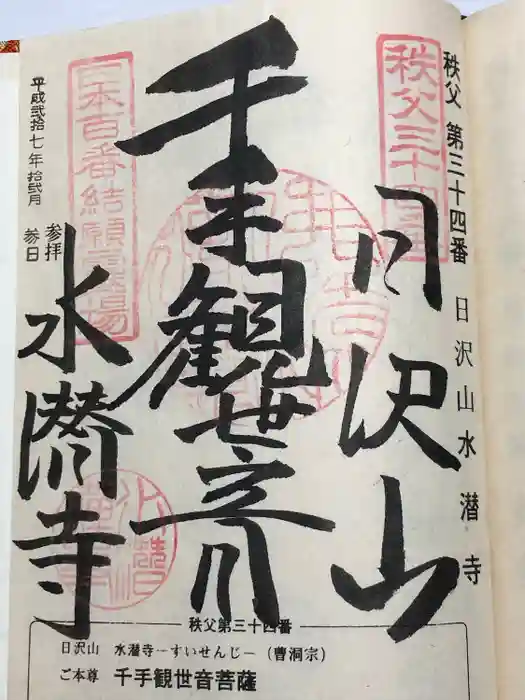 秩父 第三十四番 日沢山水潜寺
秩父三十四番
日沢山
千手観世音
日本百番結願霊場
水潜寺
平成弐拾七年 拾弐月 参日
参拝
秩父第三十四番
日沢山 水潜寺－すいせんじ－(曹洞宗)
ご本尊 千手観世音菩薩